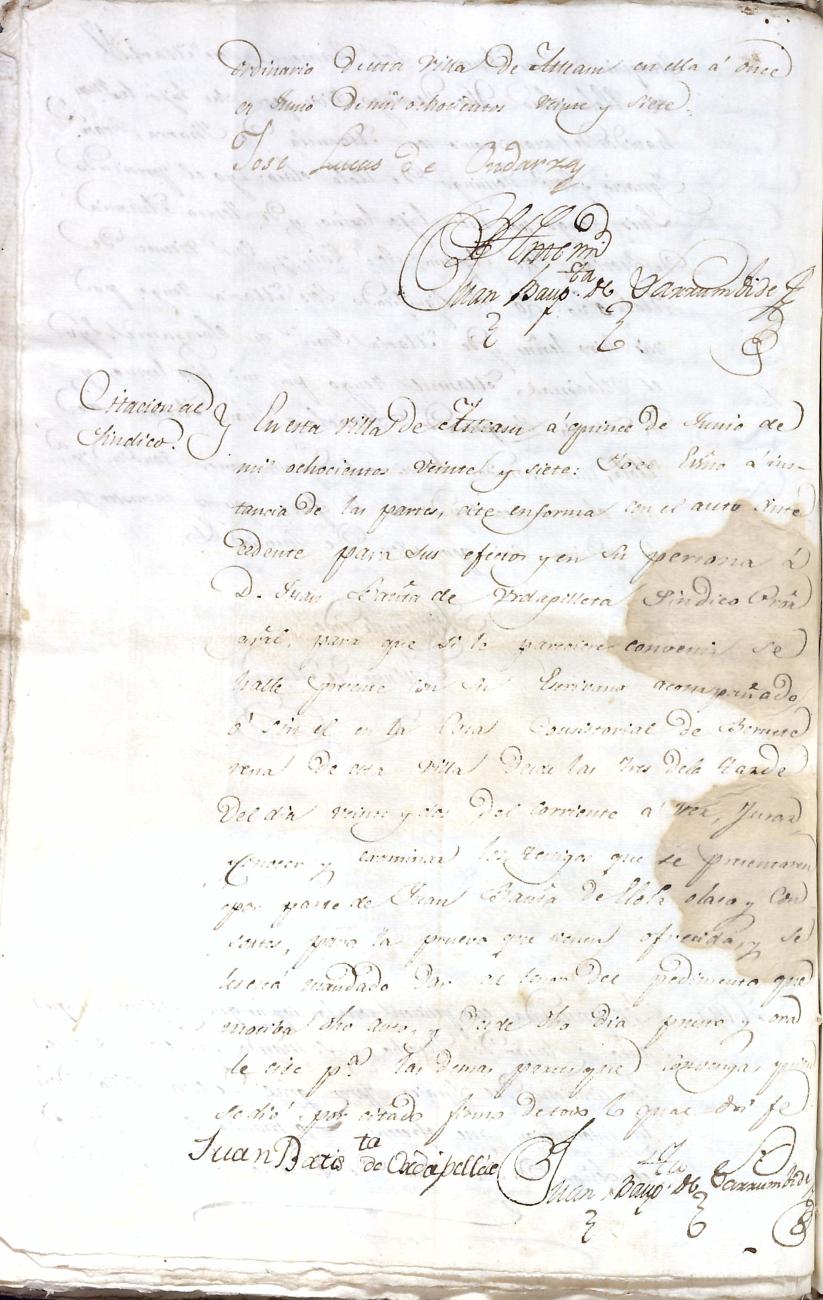 ordinario de esta villa de Atteani en ella á once
en Junio de mil ochocientos veinte y siete.
José Lucas de Ondarza
Ante mi
Juan Baup.ta de Larrumbide
Citacion al
Sindico.
En esta villa de á quince de Junio de
mil ochocientos veinte y siete: Yo el Essno á ins-
tancia de las partes, cite en forma con el auto ante
cedente para sus efectos y en su persona á
D. Juan Bauta de Urdapilleta Sindico Prõr
para que si le pareciere convenir se
halle presente con su Escrivano acompañado,
ó sin el en la Casa Consistorial de
de esta villa desde las tres dela tarde
del dia veinte y dos del corriente a ver, Jurar,
conocer y examinar los testigos que se presentaren
por parte de Juan Bauta de y con
sortes, para la prueba que tienen ofrecida, y se
les está mandado dar al tenor del pedimento que
motiba dho auto, y desde dho dia puesto y ora
le cite p.a las demas partes que convenga, quien
se dió por citado firmó de todo lo qual doi fe
Juan Batista de Urdapilleta
Juan Baup.ta de Larrumbide